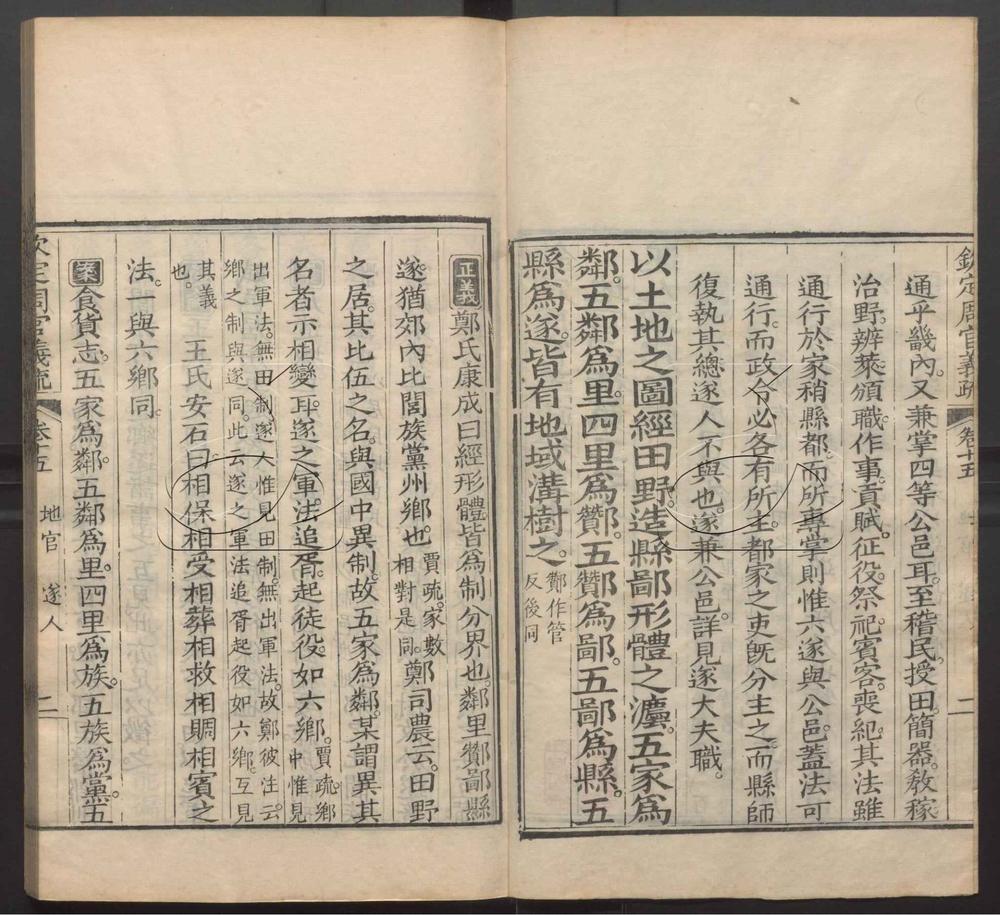 欽定周官義疏 卷十五 二
通乎畿內。又兼掌四等公邑耳。至稽民。授田。簡器。教稼
治野。辨萊。頒職。作事。貢賦。征役。祭祀。賓客。喪紀。其法雖
通行於家稍縣都。而所專掌則惟六遂與公邑。蓋法可
通行。而政令必各有所主。都家之吏旣分主之。而縣師
復執其總。遂人不與也。遂兼公邑。詳見遂大夫職。
以土地之圖經田野。造縣鄙形體之灋。五家爲
鄰。五鄰爲里。四里爲酇。五酇爲鄙。五鄙爲縣。五
縣爲遂。皆有地域溝樹之。酇作管
反後同
正義 鄭氏康成曰經形體皆爲制分界也。鄰里酇鄙縣
遂。猶郊內比閭族黨州鄉也。賈疏。家數
相對是同。鄭司農云。田野
之居。其比伍之名。與國中異制。故五家爲鄰。某謂異其
名者示相變耳。遂之軍法。追胥。起徒役。如六鄉。賈疏。鄉
中惟見
出軍法。無田制。遂人惟見田制。無出軍法。故鄭彼注云。
鄉之制與遂同。此云遂之軍法追胥起役如六鄉。互見
其義
也。 王氏安石曰。相保相受相葬相救相賙相賓之
法。一與六鄉同。
案 食貨志。五家爲鄰。五鄰爲里。四里爲族。五族爲黨。五
欽定周官義疏 卷十五 地官 遂人 二